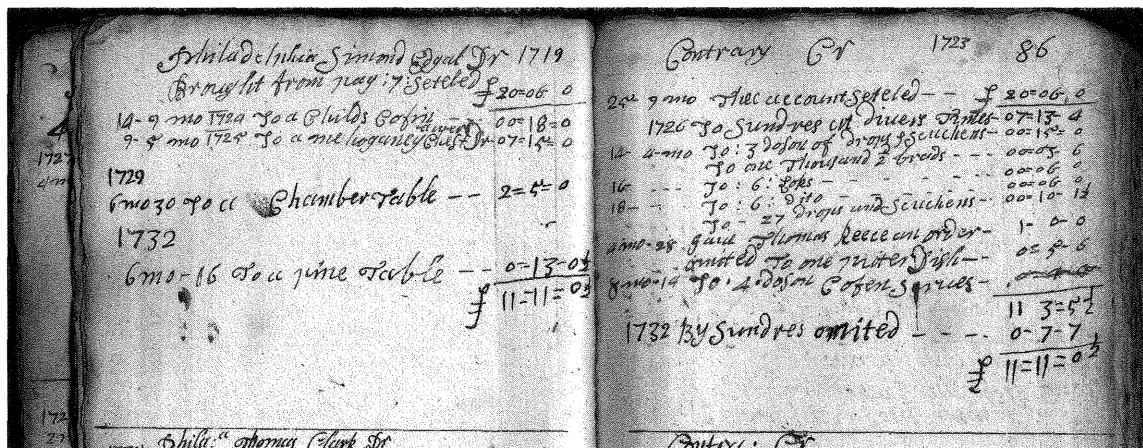 Philadelphia Simond Edgal Dr 1719
Brought from pag: 7: Seteled £ 20=06 0
14-9 mo 1724 To a Childs Cofin -- 00=18=0
9-5 mo 1725 To a mehogany Chest Dr 07=15=0
1729
6mo 30 To a Chamber Table -- 2=5=0
1732
6mo-16 To a pine Table -- 0-13-0½
£ 11=11=0½
Phila:a Thomas Clark Dr
Contrary Cr 1723 86
25 9 mo The account Seteled -- £ 20=06 0
1726 To Sundres at Divers Times 07-13-4
14 4-mo To: 3 doson of drops & Scuchens- 00=15=0
To one Thousand 2 brads --- 00=03 6
16 ---- To: 6: Loks 00=06 0
18 --- To: 6: Dito 00=06 0
To - 27 drops and Scuchens- 00=10-1½
4mo-28 gave Thomas Reece an order- 1-0-0
omited To one puter Dish-- 0=5-6
8mo-14 To: 4 doson Cofen Scrues- 0-4-0
11 3=5½
1732 By Sundres omited ---- 0-7-7
£ 11=11=0½
Contra: Cr
4
1727
4m
172
27